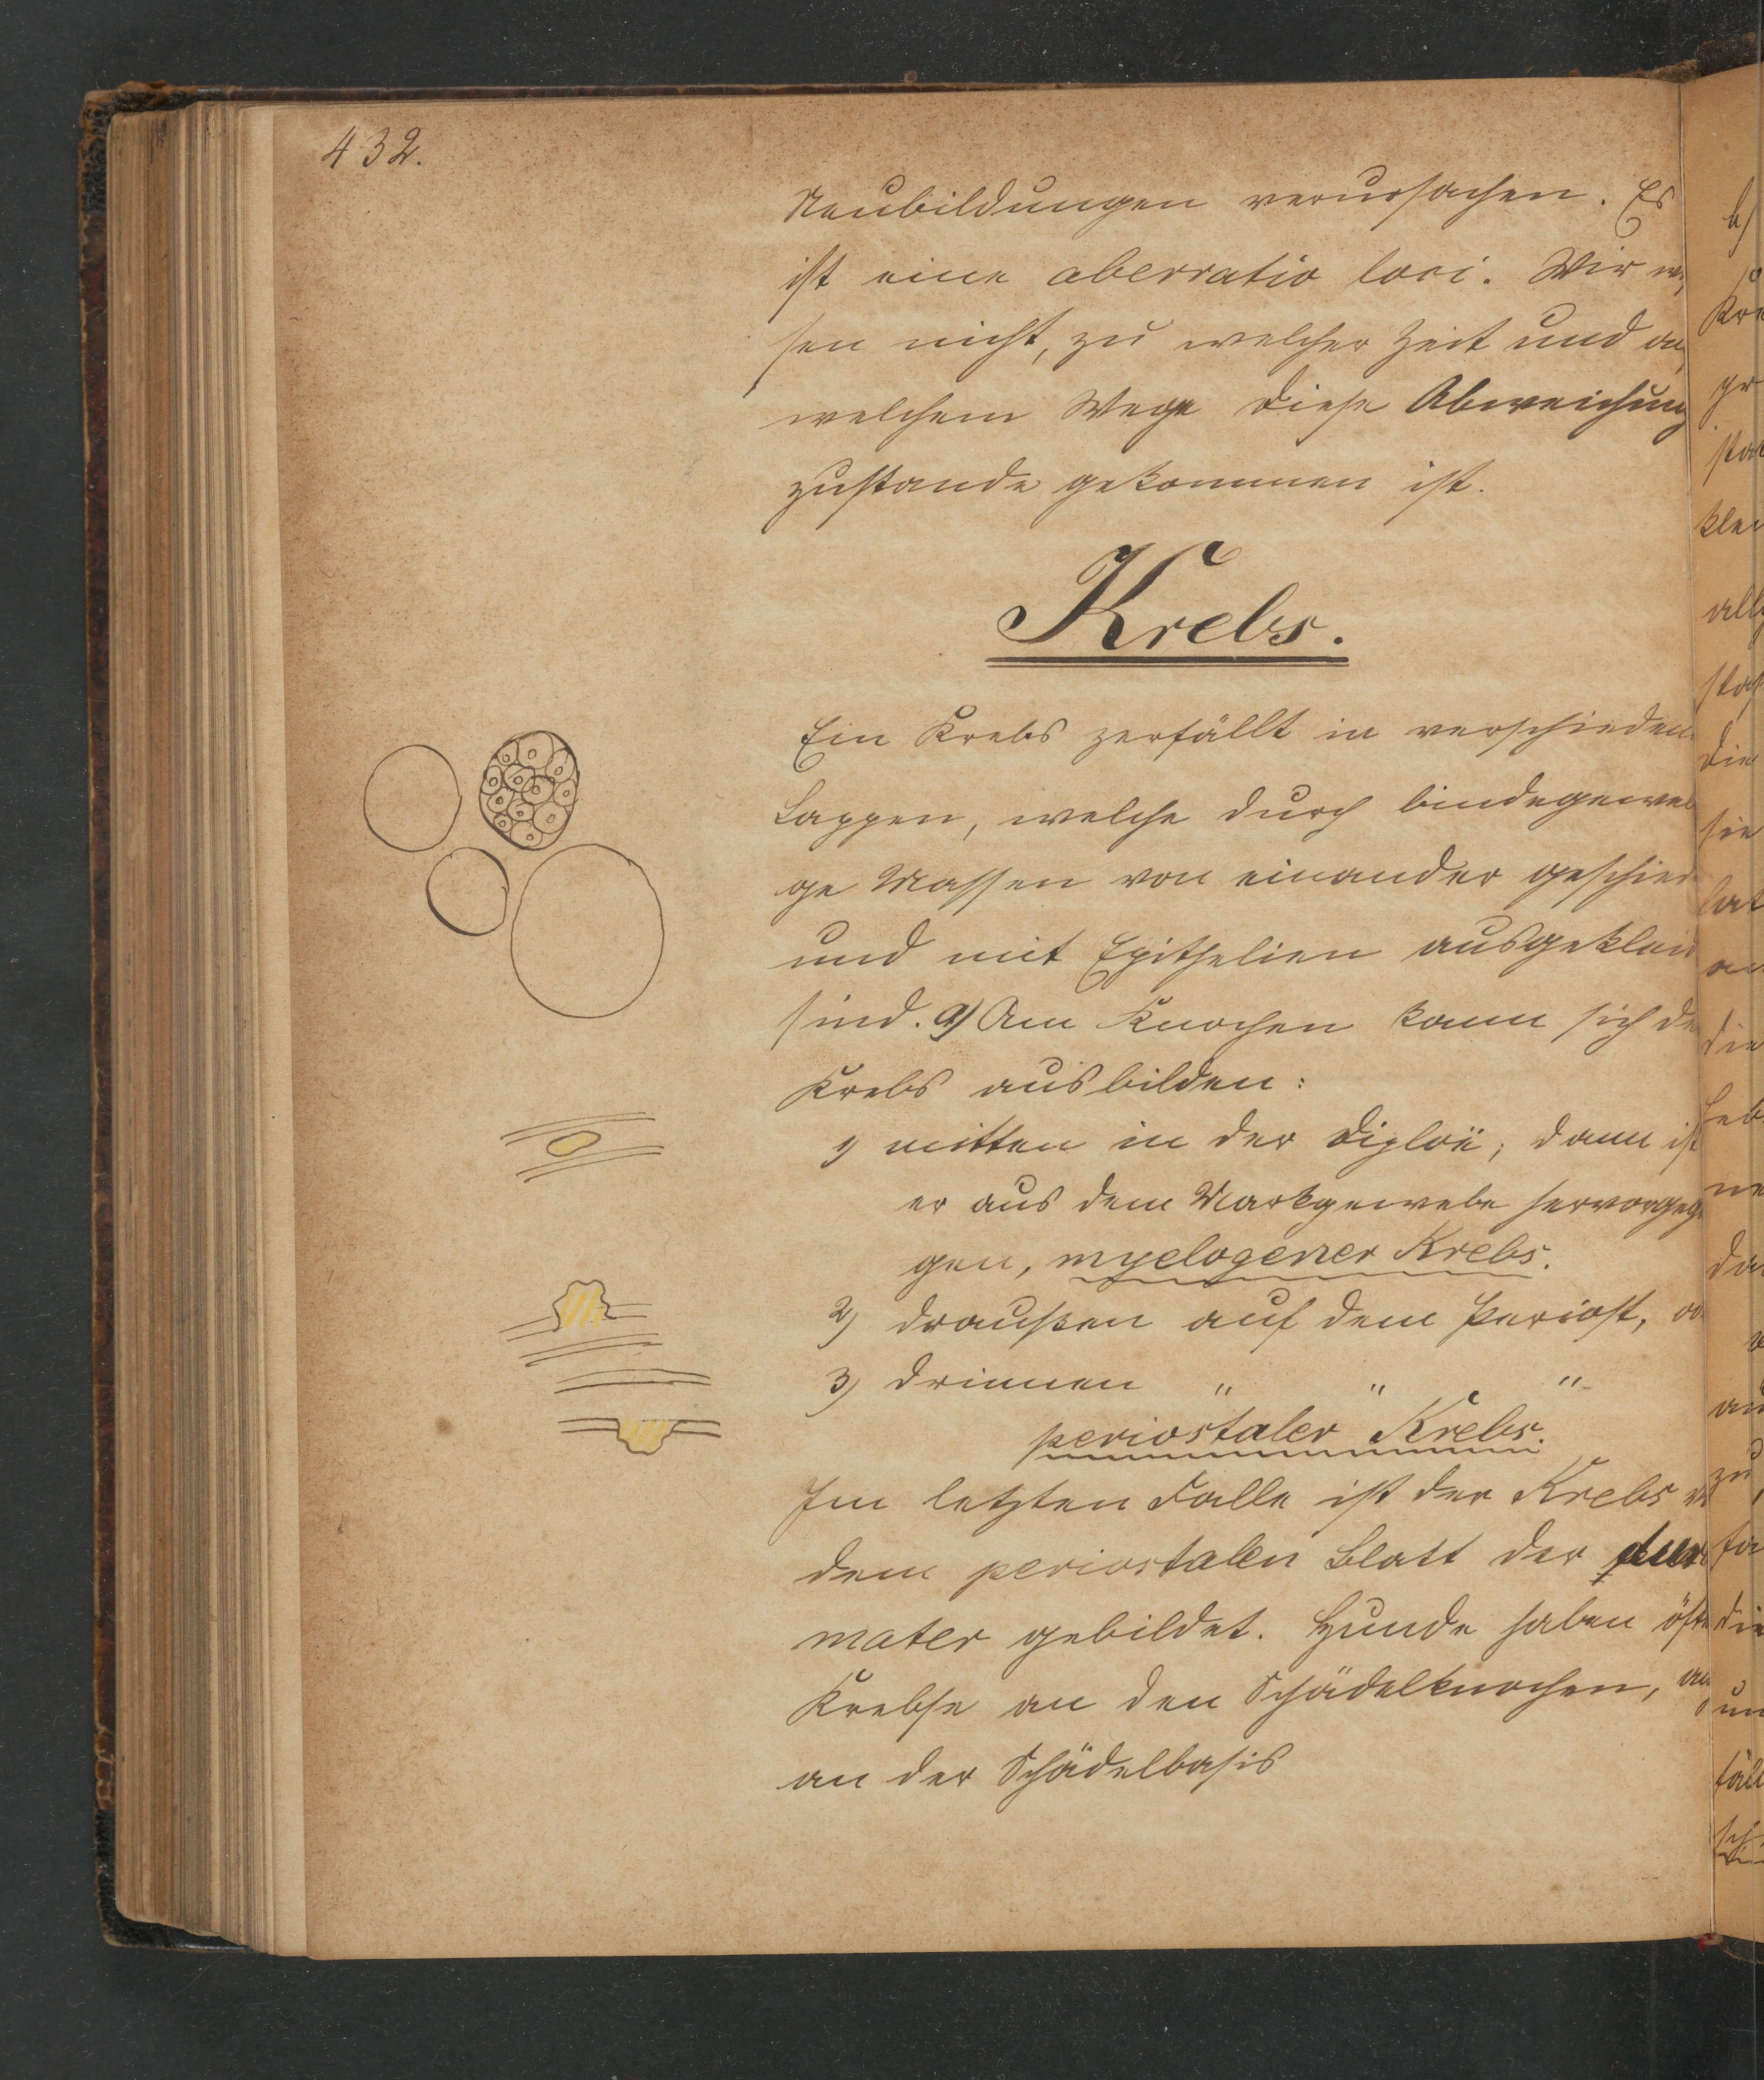 432.
Neubildungen verursachen. Es
ist eine aberratio loci. Wir
sen nicht, zu welcher Zeit und
welchem Wege diese Abweichung
zustande gekommen ist.
Krebs.
Ein Krebs zerfällt in verschieden
Lappen, welche durch bindegeweb
ge Massen von einander geschied
und mit Epithelien ausgekleid
sind. a) Am Knochen kann sich de
Krebs ausbilden:
1) mitten in der Diploë; dann ist
er aus dem Markgewebe hervorgega
gen, myelogener Krebs.
2) draußen auf dem Periost, od
3) drinnen " " "
periostaler Krebs.
Im letzten Falle ist der Krebs
dem periostalen Blatt der dura
mater gebildet. Hunde haben öfte
Krebse an den Schädelknochen,
an der Schädelbasis
b)
Kre
gr
sta
klei
all
die
sie
lat
an
die
Leb
ne
da
au
zu
fa
die
un
fäll